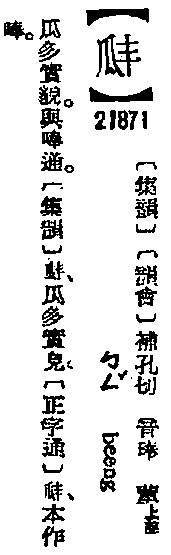 【】
21871
〔集韻〕〔韻會〕補孔切 音琫 董上聲
ㄅㄥˇ beeng
瓜多實貌。與唪通。〔集韻〕、瓜多實皃。〔正字通〕、本作
唪。